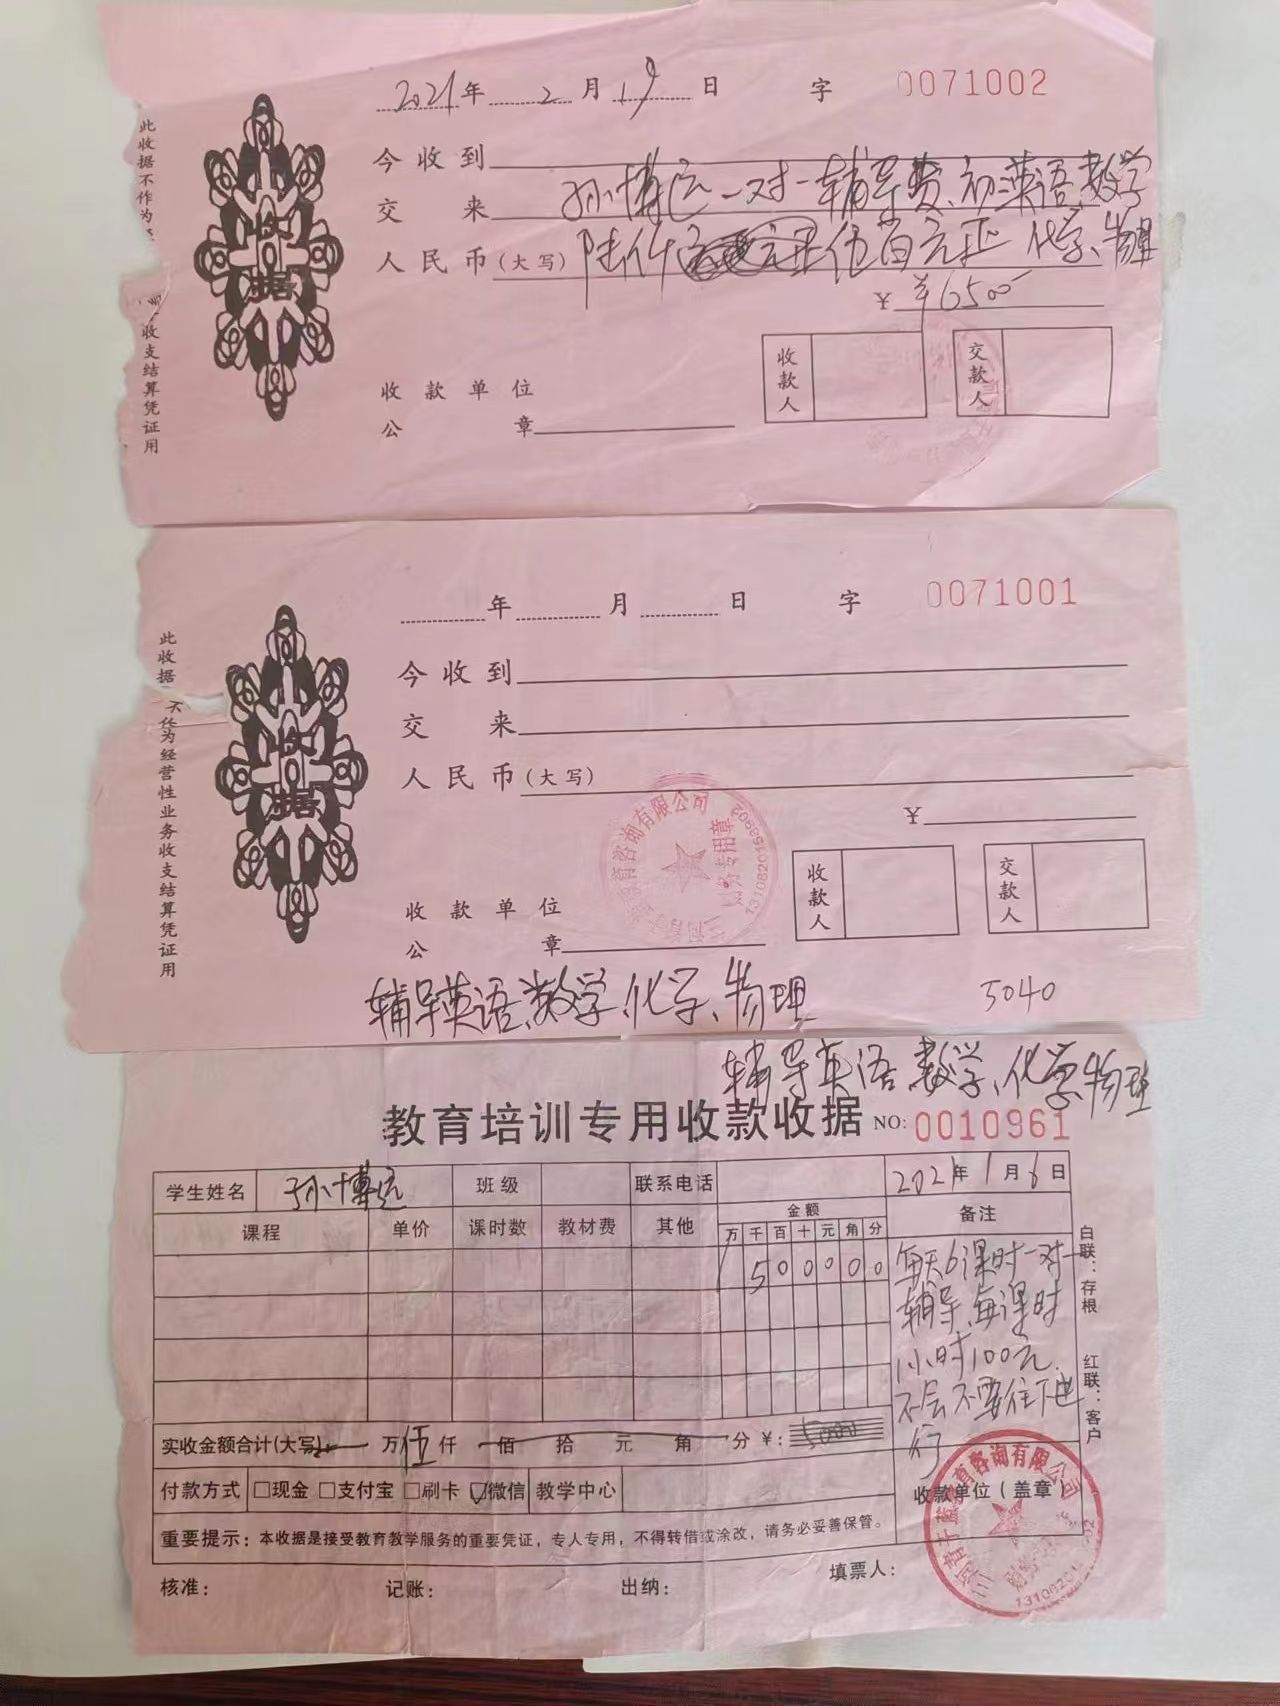 2021年 2月 19日 字 0071002
今收到
交来 孙博远一对一辅导费、初三英语、数学
人民币(大写) 陆仟 伍百元正 化学、物理
¥ ¥6500
收款人 交款人
收款单位
公章
此收据不作为
收支结算凭证用
收据
年 月 日 字 0071001
今收到
交来
人民币(大写)
¥
收款人 交款人
收款单位
公章
育咨询有限公司
专用章
此收据不作为经营性业务收支结算凭证用
收据
辅导英语、数学、化学、物理 5040
辅导英语、数学、化学、物理
教育培训专用收款收据 NO: 0010961
学生姓名 孙博远 班级 联系电话 2021年1月6日
课程 单价 课时数 教材费 其他 金额 备注
万 千 百 十 元 角 分
5 0 0 0 0 0
每天6课时一对一
辅导、每课时
1小时100元.
不会不要往下进
行
实收金额合计(大写) 万 伍仟 佰 拾 元 角 分 ¥: 5000
付款方式 □现金 □支付宝 □刷卡 ☑微信 教学中心
收款单位(盖章)
重要提示:本收据是接受教育教学服务的重要凭证，专人专用，不得转借或涂改，请务必妥善保管。
核准: 记账: 出纳: 填票人:
白联:存根 红联:客户
育咨询有限公司